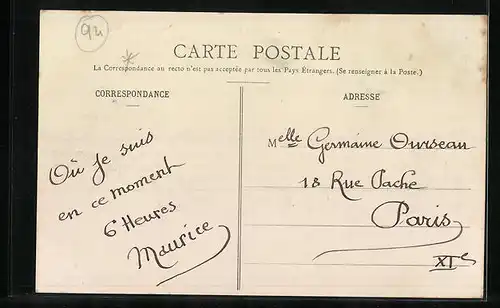 92
CARTE POSTALE
La Correspondance au recto n'est pas acceptée par tous les Pays Étrangers. (Se renseigner à la Poste.)
CORRESPONDANCE
Où je suis
en ce moment
6 Heures
Maurice
ADRESSE
Melle Germaine Ourseau
18 Rue Pache
Paris
XIe